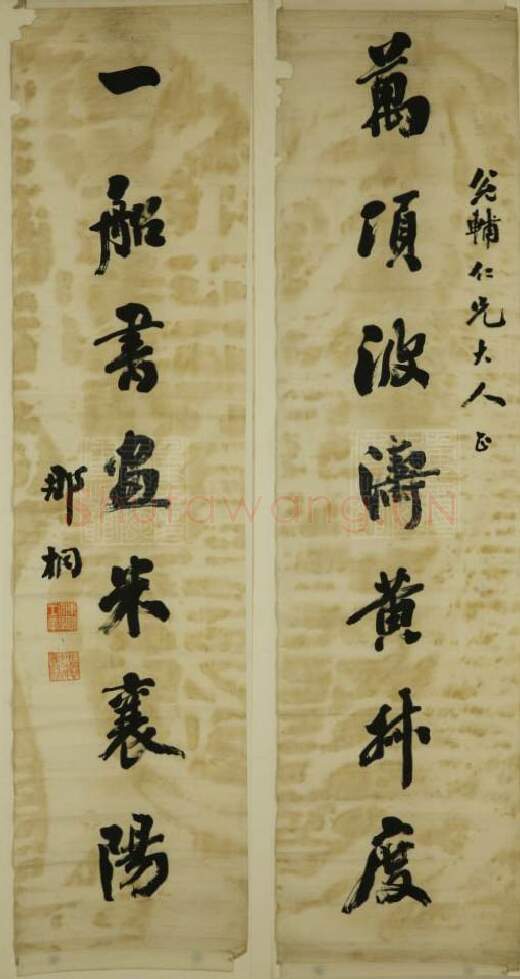 輔仁兄大人正
萬頃波濤黃叔度
一船書畫米襄陽
那桐
shufawang.CN